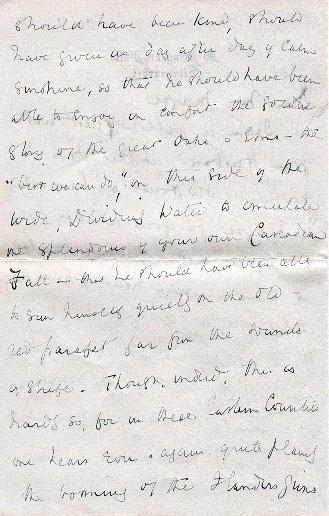 should have been kind, should
have given us day after day of calm
sunshine, so that he should have been
able to enjoy in comfort the golden
glory of the great Oaks & Elms – the
"best we can do", on this side of the
wide, Dividing Water to emulate
the splendours of your own Canadian
Fall – that he should have been able
to sun himself quietly on the old
red parapet far from the sounds
of Strife. Though, indeed, this is
hardly so, for in these Eastern Counties
one hears ever & again, quite plainly
the booming of the Flanders Guns